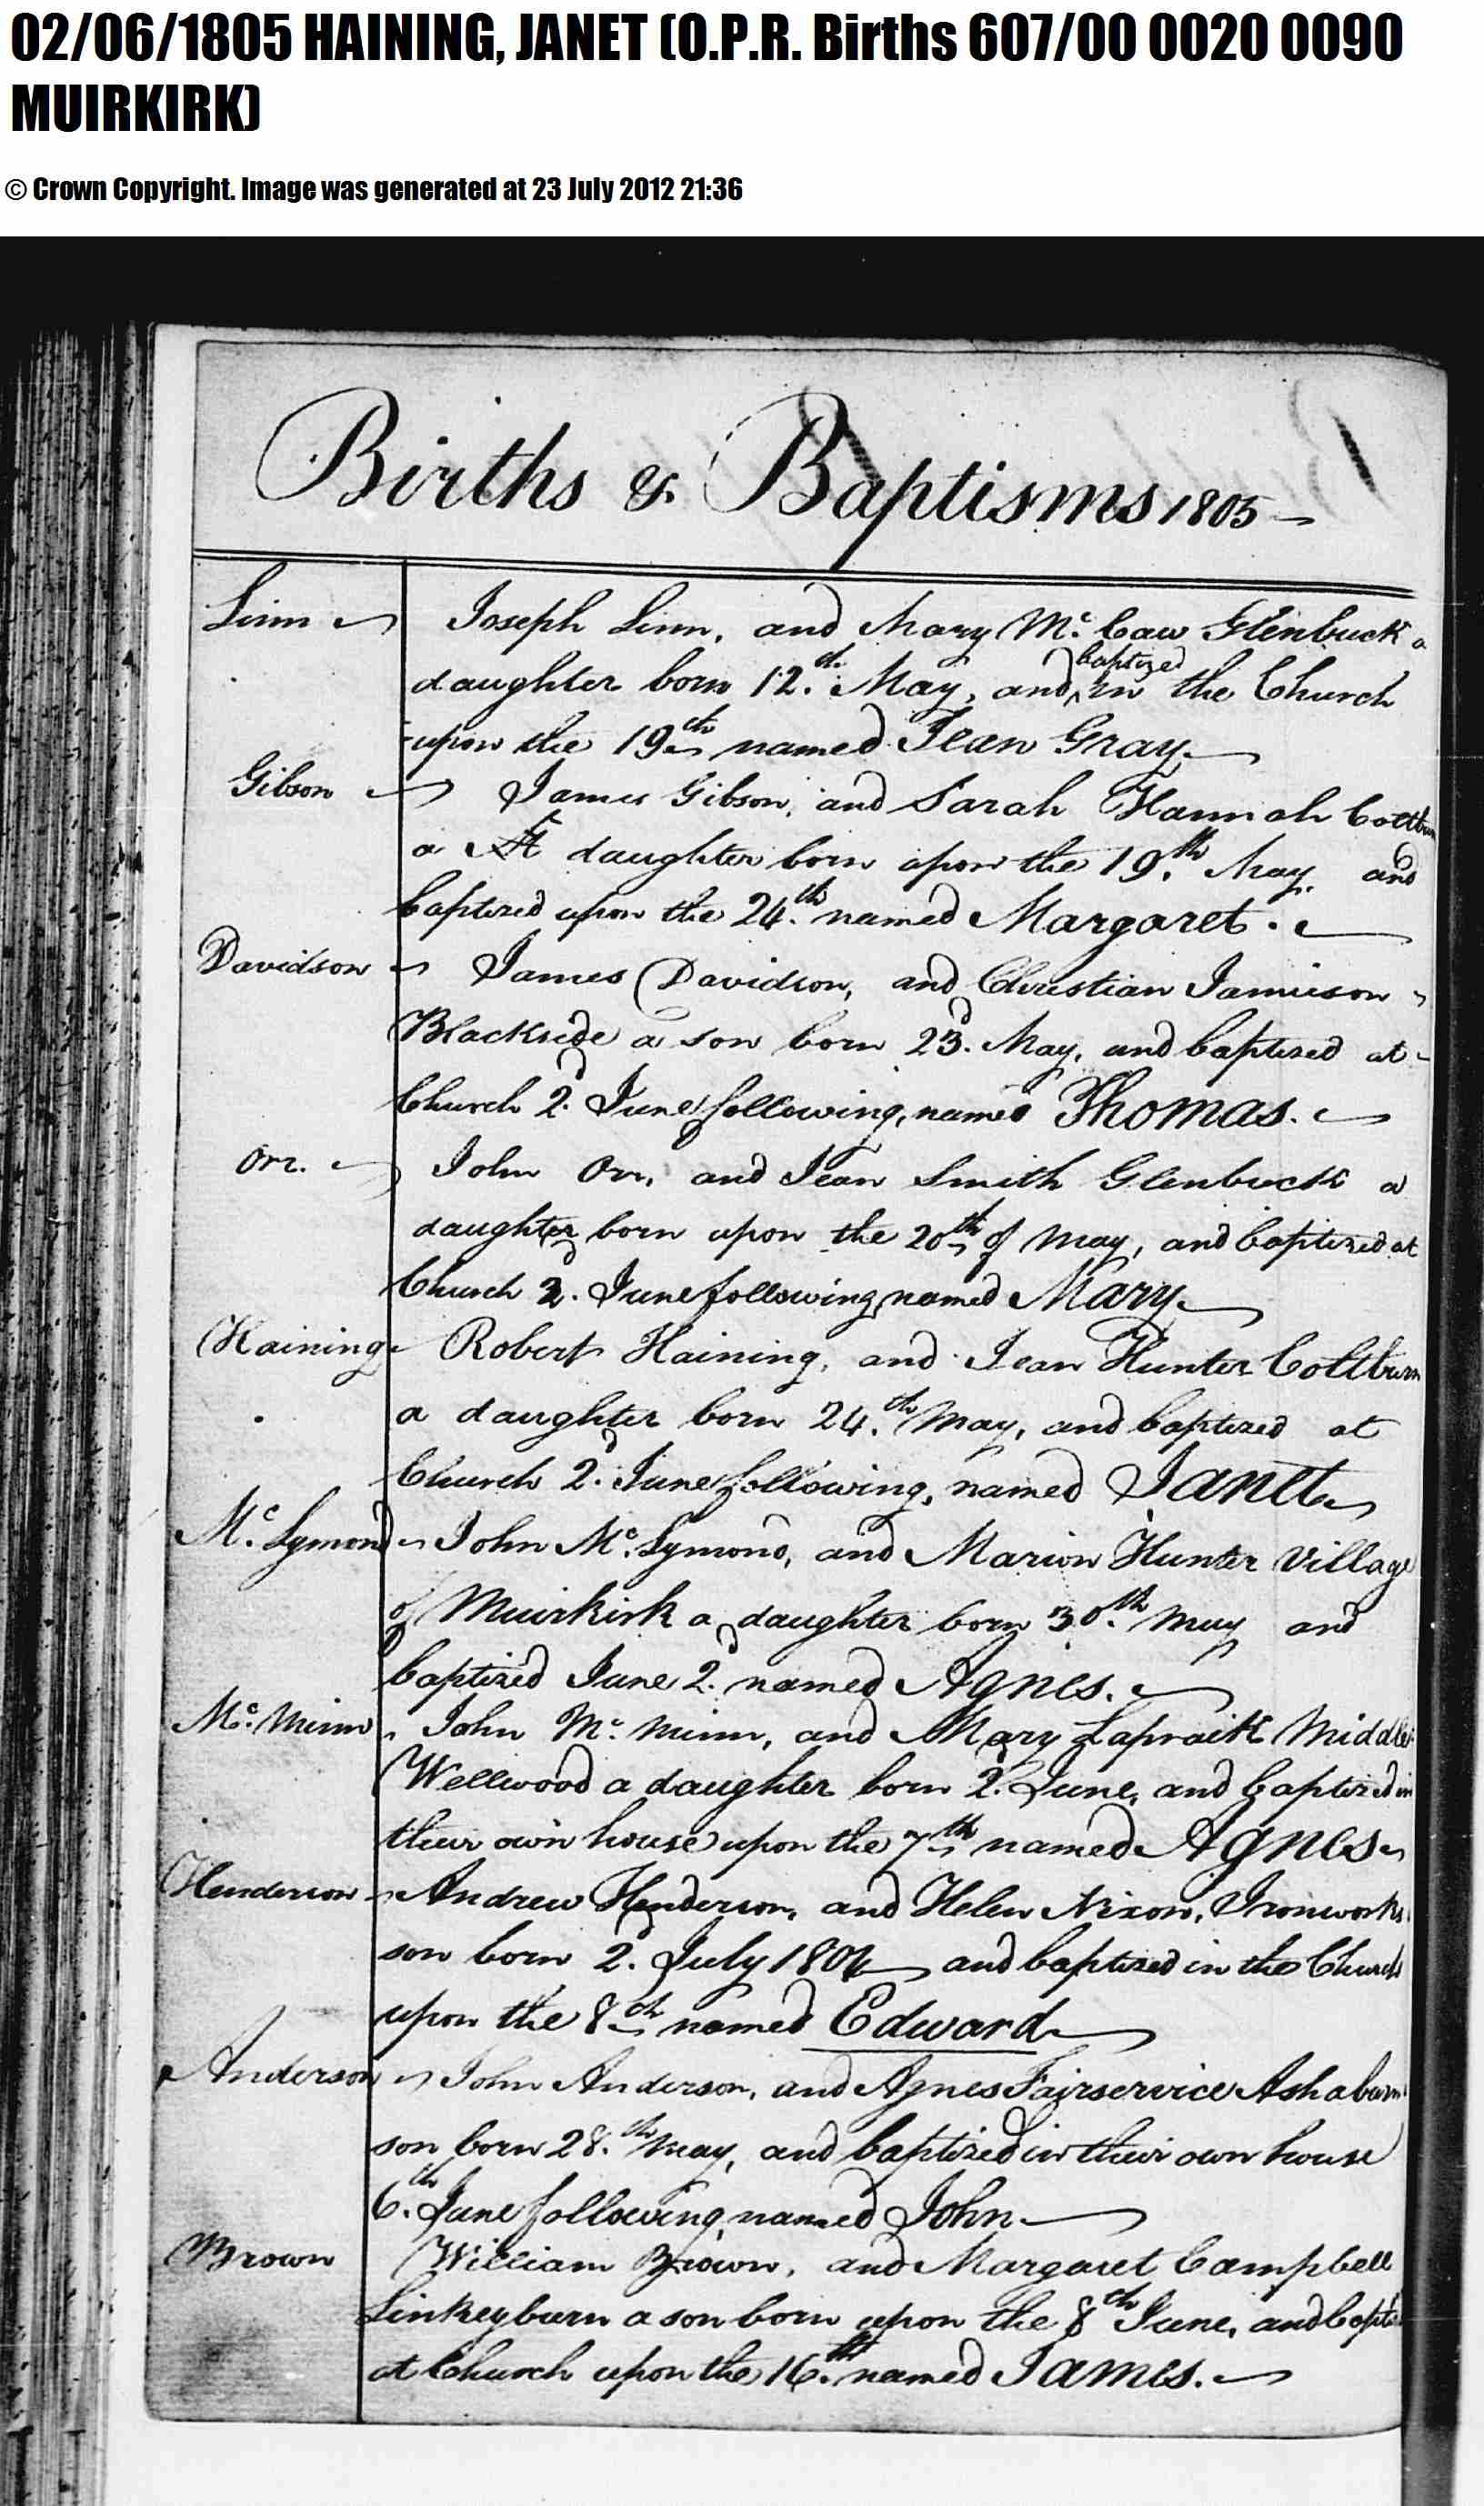 02/06/1805 HAINING, JANET (O.P.R. Births 607/00 0020 0090
MUIRKIRK)
© Crown Copyright. Image was generated at 23 July 2012 21:36
Births & Baptisms 1805
Linn Joseph Linn, and Mary Mc. Caw Glenbuck a
daughter born 12.th May, and baptized in the Church
upon the 19th named Jean Gray
Gibson James Gibson, and Sarah Hannah
a daughter born upon the 19.th May and
baptized upon the 24.th named Margaret.
Davidson James Davidson, and Christian Jamieson
Blackside a son born 23.d May, and baptized at
Church 2.d June following, named Thomas.
Orr. John Orr, and Jean Smith Glenbuck a
daughter born upon the 20th of May, and baptized at
Church 2.d June following named Mary
Haining Robert Haining, and Jean Hunter Coltburn
a daughter born 24.th May, and baptized at
Church 2.d June following, named Janet
Mc. Symond John Mc. Symond, and Marion Hunter Village
of Muirkirk a daughter born 30.th May and
baptized June 2.d named Agnes.
Mc. Minn John Mc. Minn, and Mary Lapraik Middle
Wellwood a daughter born 2.d June, and baptized in
their own house upon the 7th named Agnes
Henderson Andrew Henderson, and Helen Nixon, Ironworks
son born 2.d July 1804 and baptized in the Church
upon the 8th named Edward
Anderson John Anderson, and Agnes Fairservice Ashaburn
son born 28.th May, and baptized in their own house
6.th June following named John
Brown William Brown, and Margaret Campbell
Linkeyburn a son born upon the 8th June, and
at Church upon the 16.th named James.